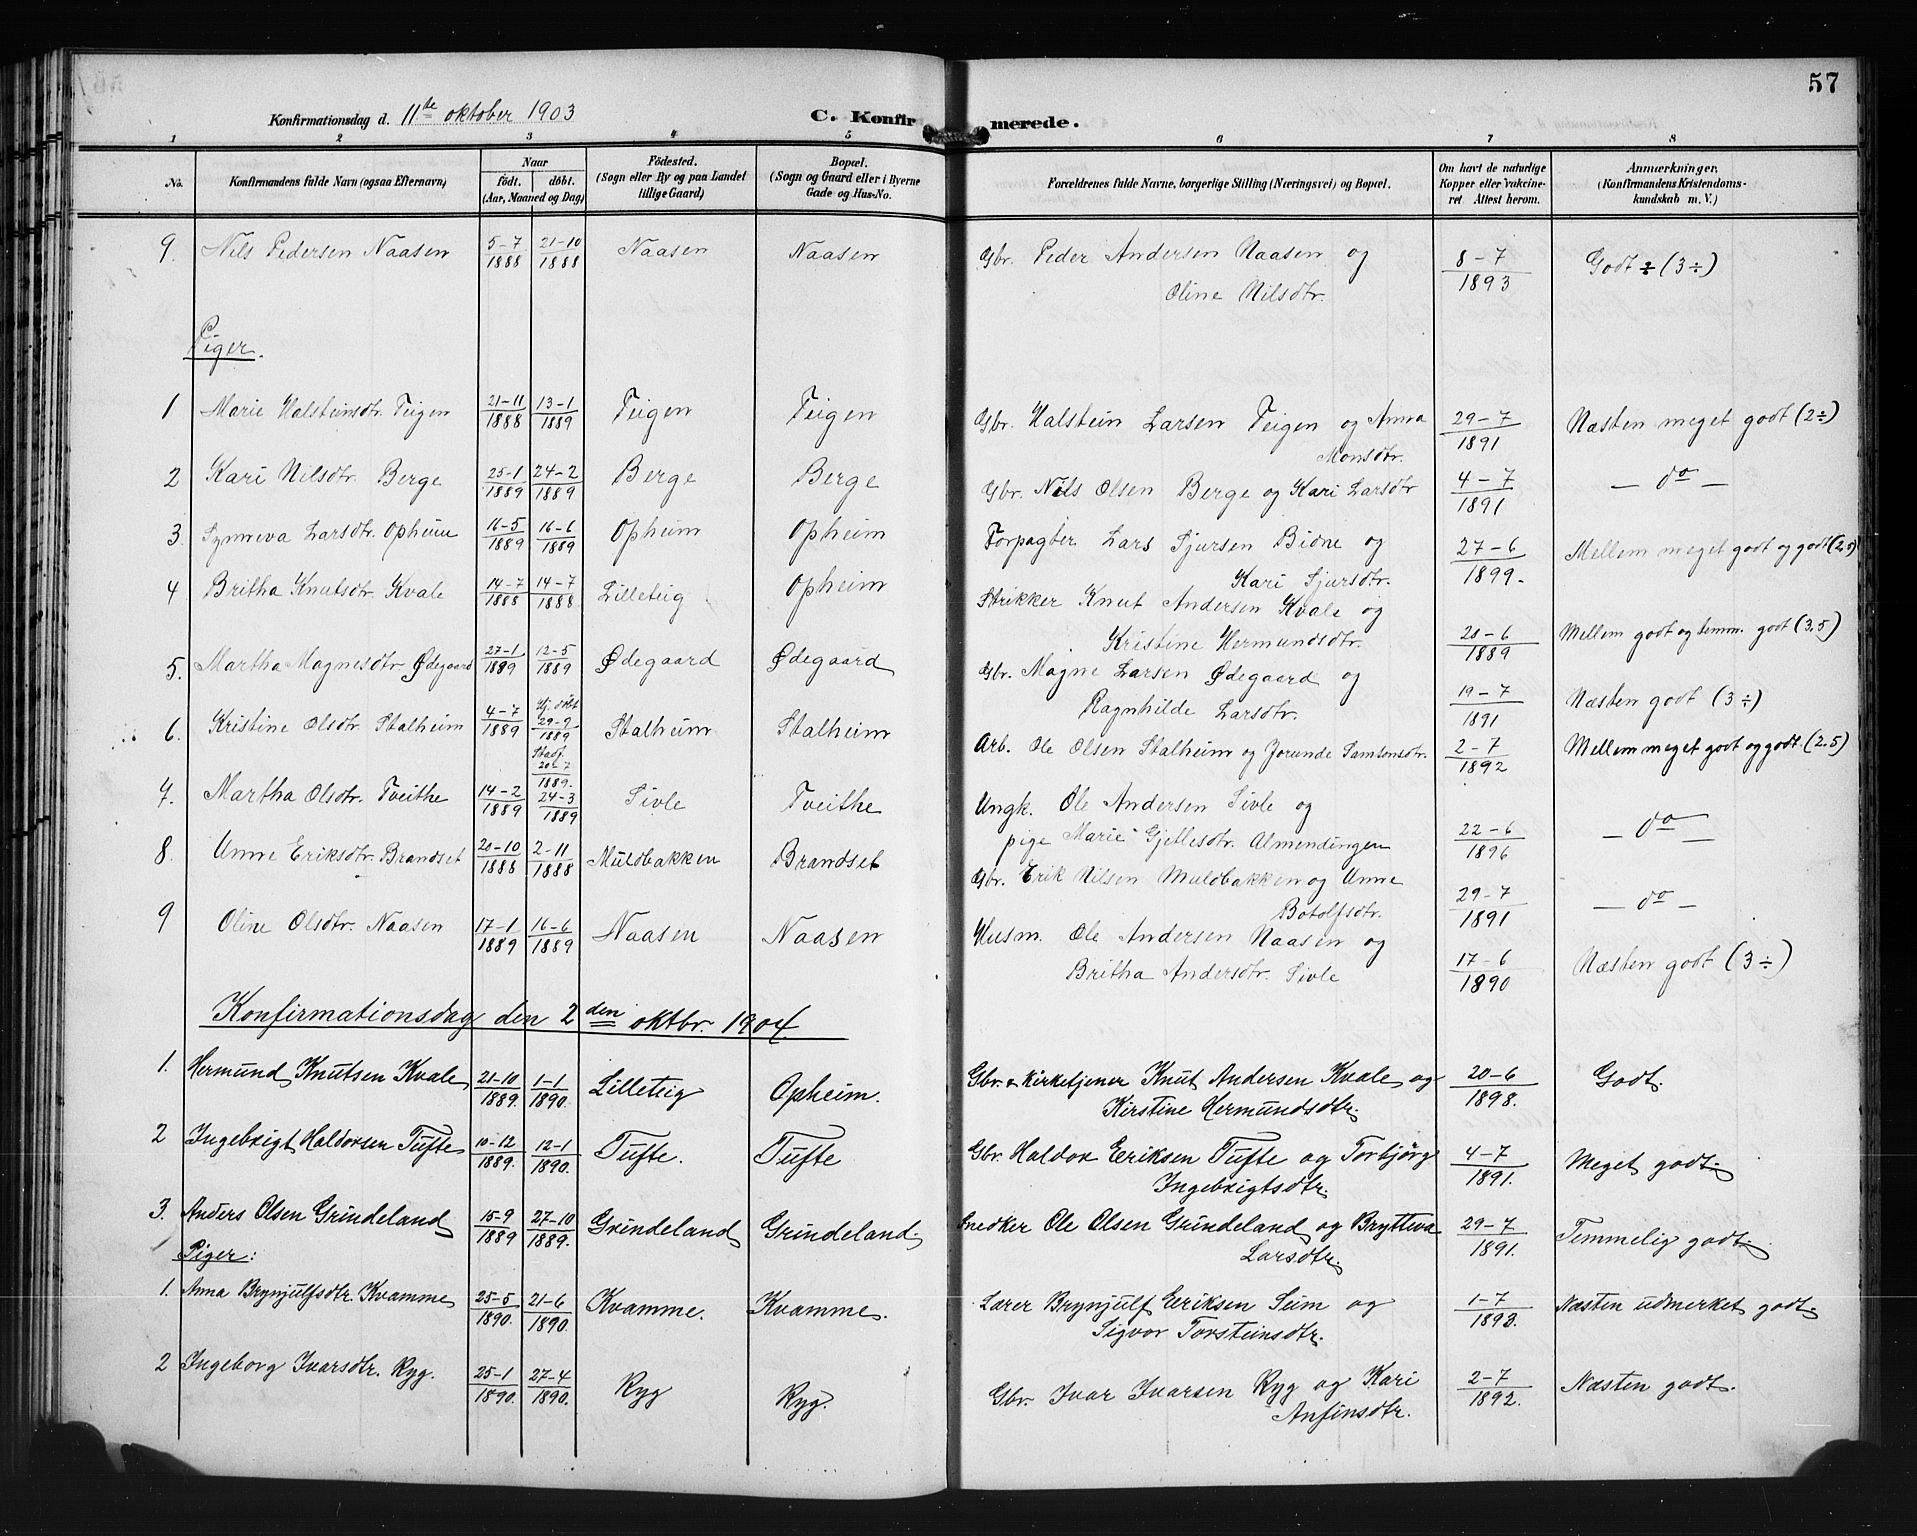 57
Konfirmationsdag d. 11te oktober 1903 C. Konfirmerede.
1 2 3 4 5 6 7 8
No. Konfirmandens fulde Navn (ogsaa Efternavn) Naar født. døbt. (Aar, Maaned og Dag) Födested. (Sogn eller By og paa Landet tillige Gaard) Bopæl. (Sogn og Gaard eller i Byerne Gade og Hus-No. Forældrenes fulde Navne, borgerlige Stilling (Næringsvei) og Bopæl. Om havt de naturlige Kopper eller vakcineret Attest herom. Anmærkninger. (Konfirmandens Kristendomskundskab m. V.)
9. Nils Pedersen Naasen 5-7 1888 21-10 1888 Naasen Naasen Gbr. Peder Andersen Naasen og 8-7 1893 Godt ÷ (3÷)
Oline Nilsdtr.
Piger.
1 Marie Halsteinsdtr. Teigen 21-11 1888 13-1 1889 Teigen Teigen Gbr. Halstein Larsen Teigen og Anna 29-7 1891 Næsten meget godt (2÷)
Monsdtr.
2 Kari Nilsdtr. Berge 25-1 1889 24-2 1889 Berge Berge Gbr. Nils Olsen Berge og Kari Larsdtr 4-7 1891 — do —
3. Synneva Larsdtr. Opheim 16-5 1889 16-6 1889 Opheim Opheim Forpagter Lars Sjursen Bidne og 27-6 1899. Mellem meget godt og godt (2,5)
Kari Sjursdtr.
4 Britha Knutsdtr. Kvale 14-7 1888 14-7 1888 Lilleteig Opheim Strikker Knut Andersen Kvale og
Kristine Hermundsdtr. 20-6 1889 Mellem godt og temm. godt (3.5)
5. Martha Magnesdtr. Ødegaard 27-1 1889 12-5 1889 Ødegaard Ødegaard Gbr. Magne Larsen Ødegaard og
Ragnhilde Larsdtr. 19-7 1891 Næsten godt (3÷)
6. Kristine Olsdtr. Stalheim 4-7 1889 Hj. døbt 29-9 1889 Stadf. 20-7 1889. Stalheim Stalheim Arb. Ole Olsen Stalheim og Jorunde Samsonsdtr. 2-7 1892 Mellem meget godt og godt. (2.5)
7. Martha Olsdtr. Tveithe 14-2 1889 24-3 1889 Sivle Tveithe Ungk. Ole Andersen Sivle og
pige Marie Gjellesdtr. Almendingen 22-6 1896 — do —
8. Unne Eriksdtr. Brandset 20-10 1888 2-11 1888 Muldbakken Brandset Gbr. Erik Nilsen Muldbakken og Unne
Botolfsdtr. 29-7 1891 — do —
9 Oline Olsdtr. Naasen 17-1 1889 16-6 1889 Naasen Naasen Husm. Ole Andersen Naasen og
Britha Andersdtr. Sivle 17-6 1890 Næsten godt (3÷)
Konfirmationsdag den 2den oktbr. 1904.
1. Hermund Knutsen Kvale 21-10 1889. 1-1 1890. Lilleteig Opheim. Gbr. & Kirketjener Knut Andersen Kvale og 20-6 1898. Godt.
Kirstine Hermundsdtr.
2 Ingebrigt Haldorsen Tufte 10-12 1889. 12-1 1890. Tufte. Tufte Gbr. Haldor Eeriksen Tufte og Torbjörg 4-7 1891. Meget godt.
Ingebrigtsdtr.
3. Anders Olsen Grindeland 15-9 1889 27-10 1889. Grindeland Grindeland. Snedker Ole Olsen Grindeland og Brytteva 29-7 1891. Temmelig godt.
Larsdtr.
Piger:
1. Anna Brynjulfsdtr. Kvamme 25-5 1890. 21-6 1890. Kvamme. Kvamme. Lærer Brynjulf Eeriksen Seim og 1-7 1893. Næsten udmerket godt.
Sigvor Torsteinsdtr.
2 Ingeborg Ivarsdtr. Ryg. 25-1 1890. 27-4 1890. Ryg Ryg. Gbr. Ivar Ivarsen Ryg og Kari 2-7 1892. Næsten godt.
Anfinsdtr.